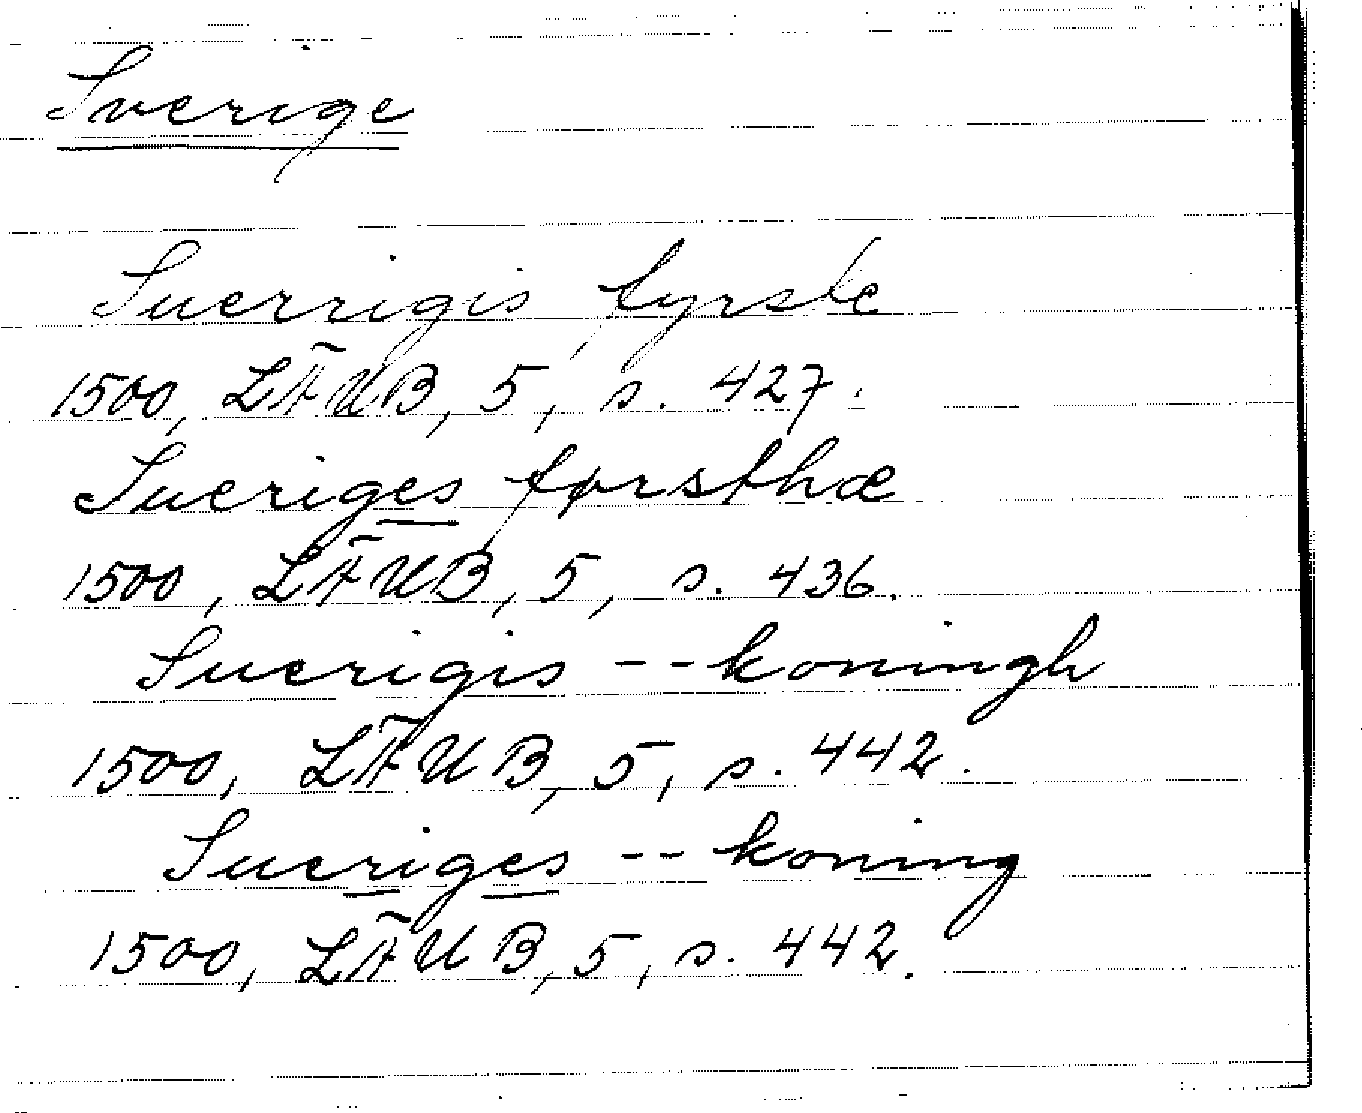 Sverige
Suerrigis fyrste
1500, LÄUB, 5, s. 427.
Suerigesførsthæ
1500, LÄUB, 5, s. 436.
Suerigis -- koningh
1500, LÄUB, 5, s. 442.
Sueriges -- koning
1500, LÄUB, 5, s. 442.